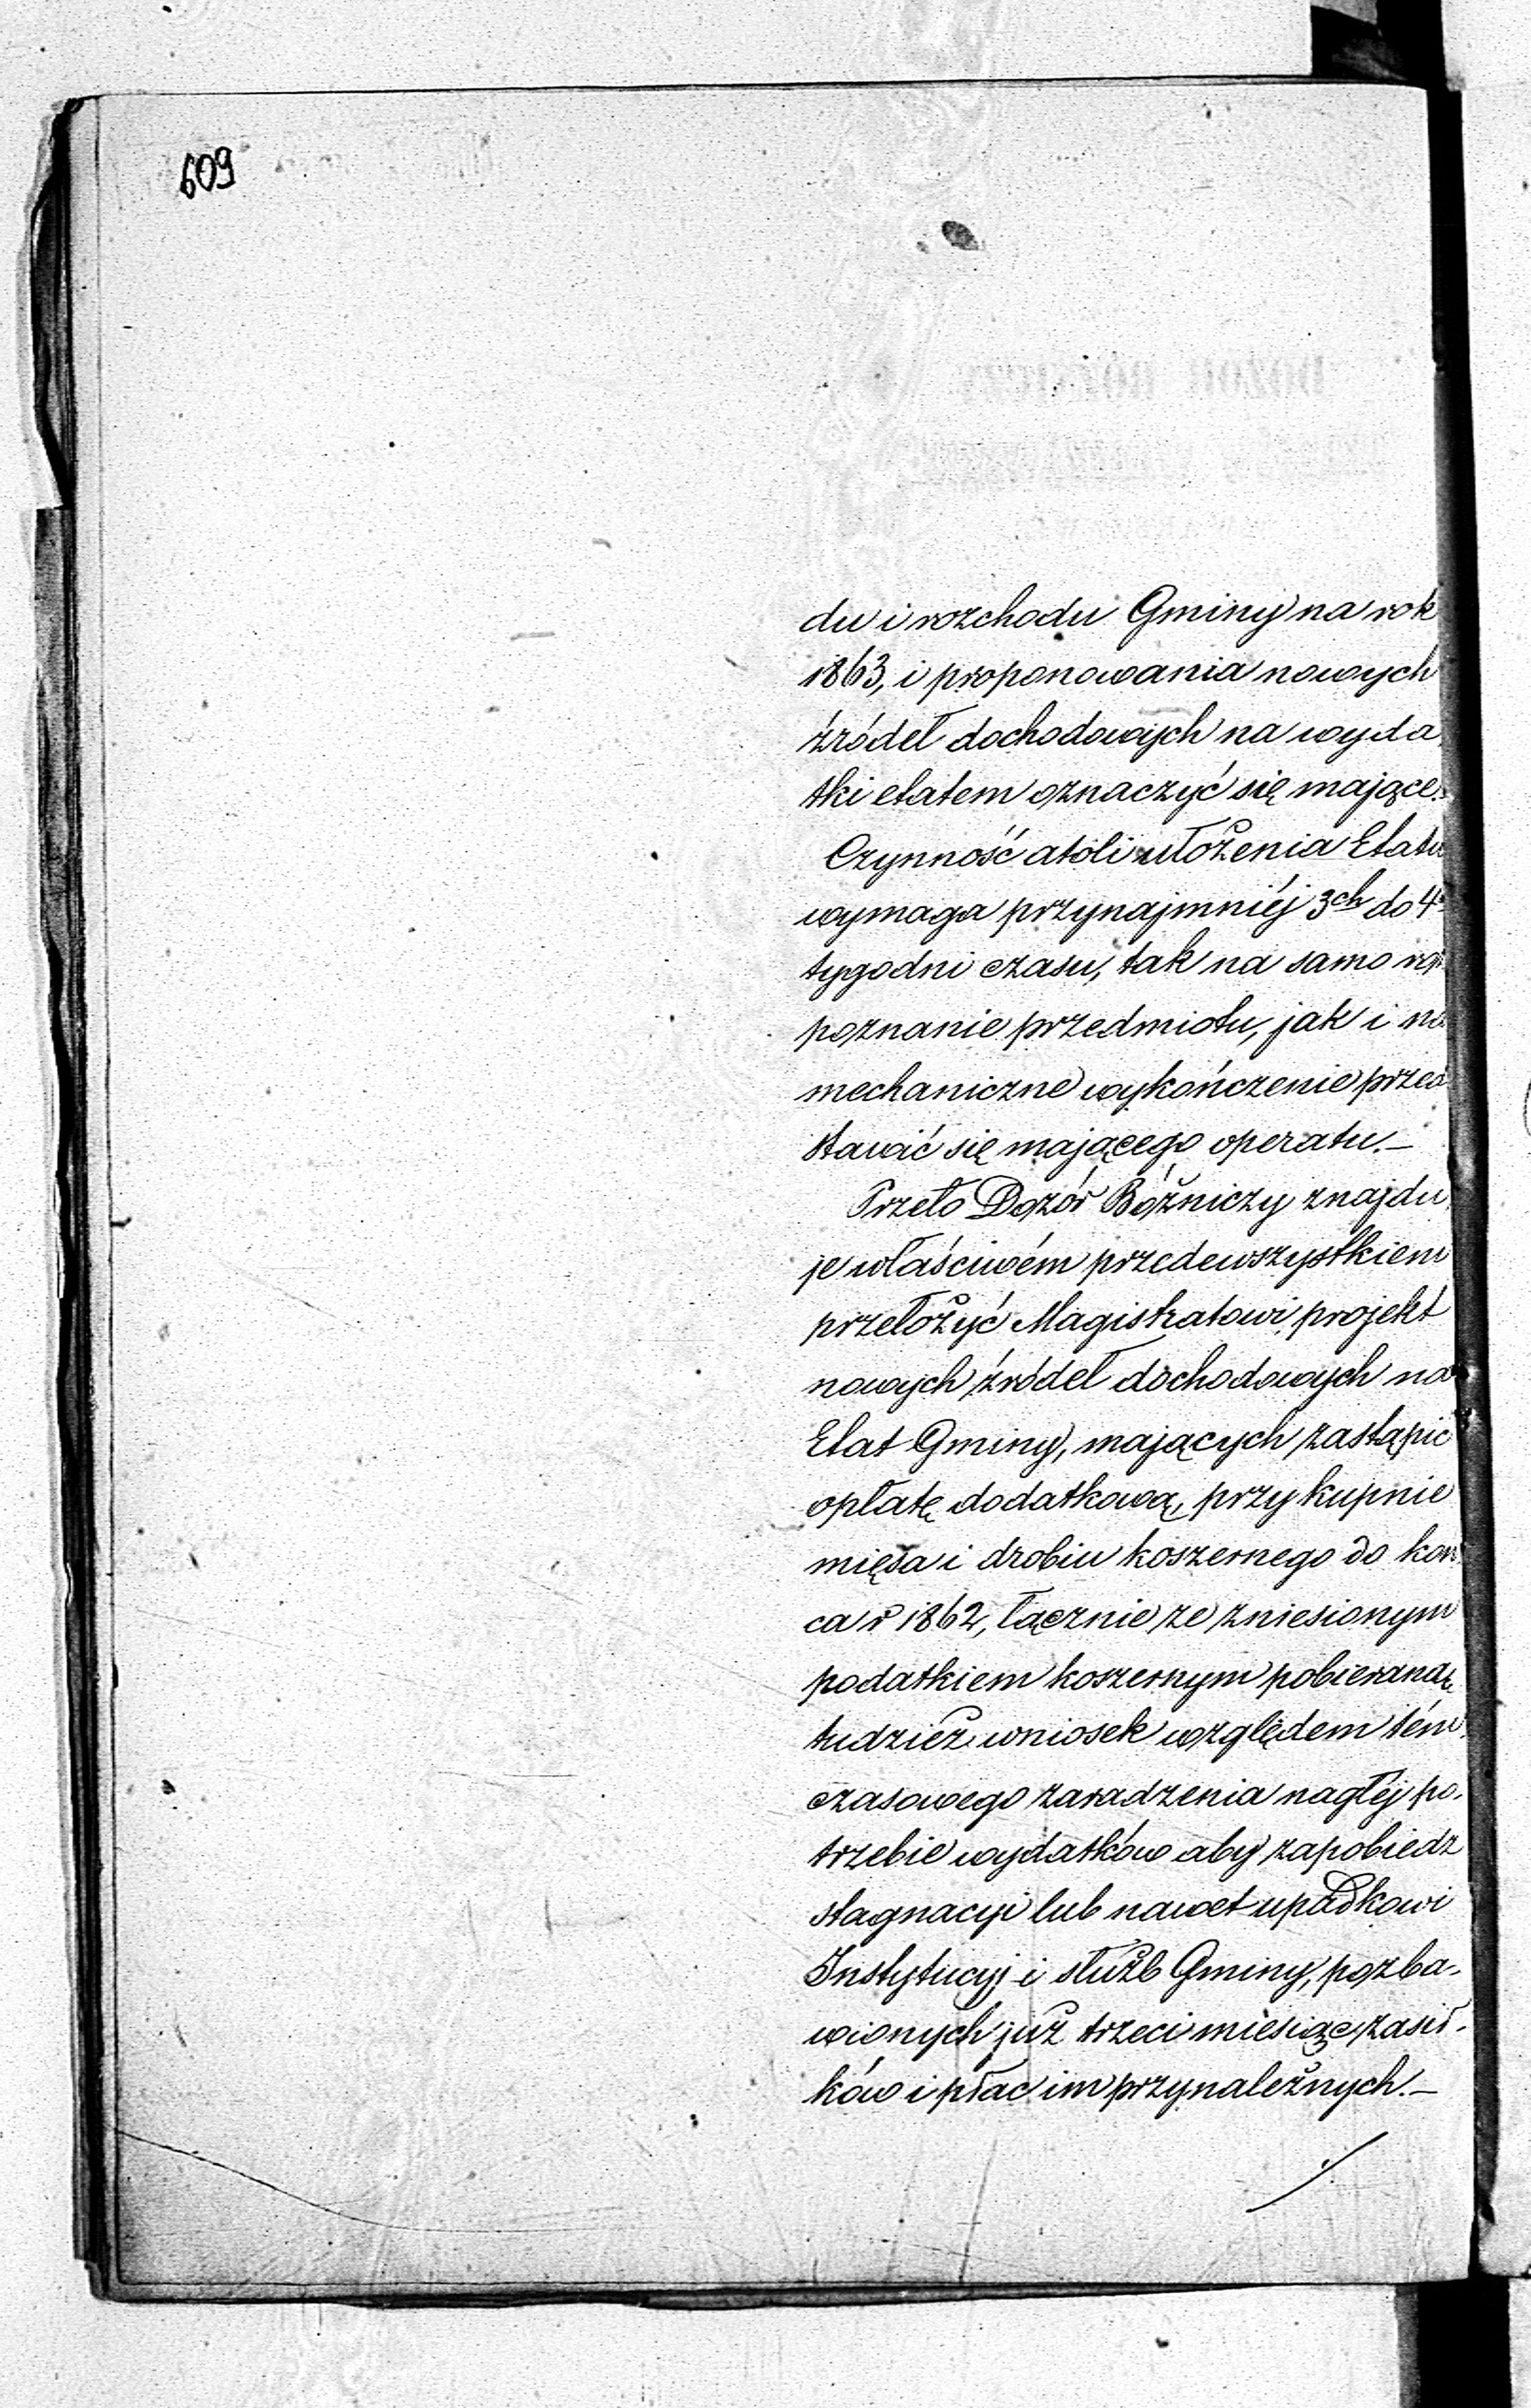 609
du i rozchodu Gminy na rok
1863, i proponowania nowych
źródeł dochodowych na wyda-
tki etatem oznaczyć się mające.
Czynność atoli ułożenia Etatu
wymaga przynajmniéj 3ch do 4
tygodni czasu, tak na samo roz
poznanie przedmiotu, jak i na
mechaniczne wykończenie przed
stawić się mającego operatu.—
Przeto Dozór Bóżniczy znajdu
je właściwém przedewszystkiem
przełożyć Magistratowi projekt
nowych źródeł dochodowych na
Etat Gminy, mających zastąpić
opłatę dodatkową, przy kupnie
mięsa i drobiu koszernego do koń
ca r 1862, łącznie ze zniesionym
podatkiem koszernym pobieraną,
tudzież wniosek względem tém
czasowego zaradzenia nagłéj po-
trzebie wydatków aby zapobiedz
stagnacyi lub nawet upadkowi
Instytucyj i służb Gminy, pozba-
wionych już trzeci miesiąc zasił-
ków i płac im przynależnych.—